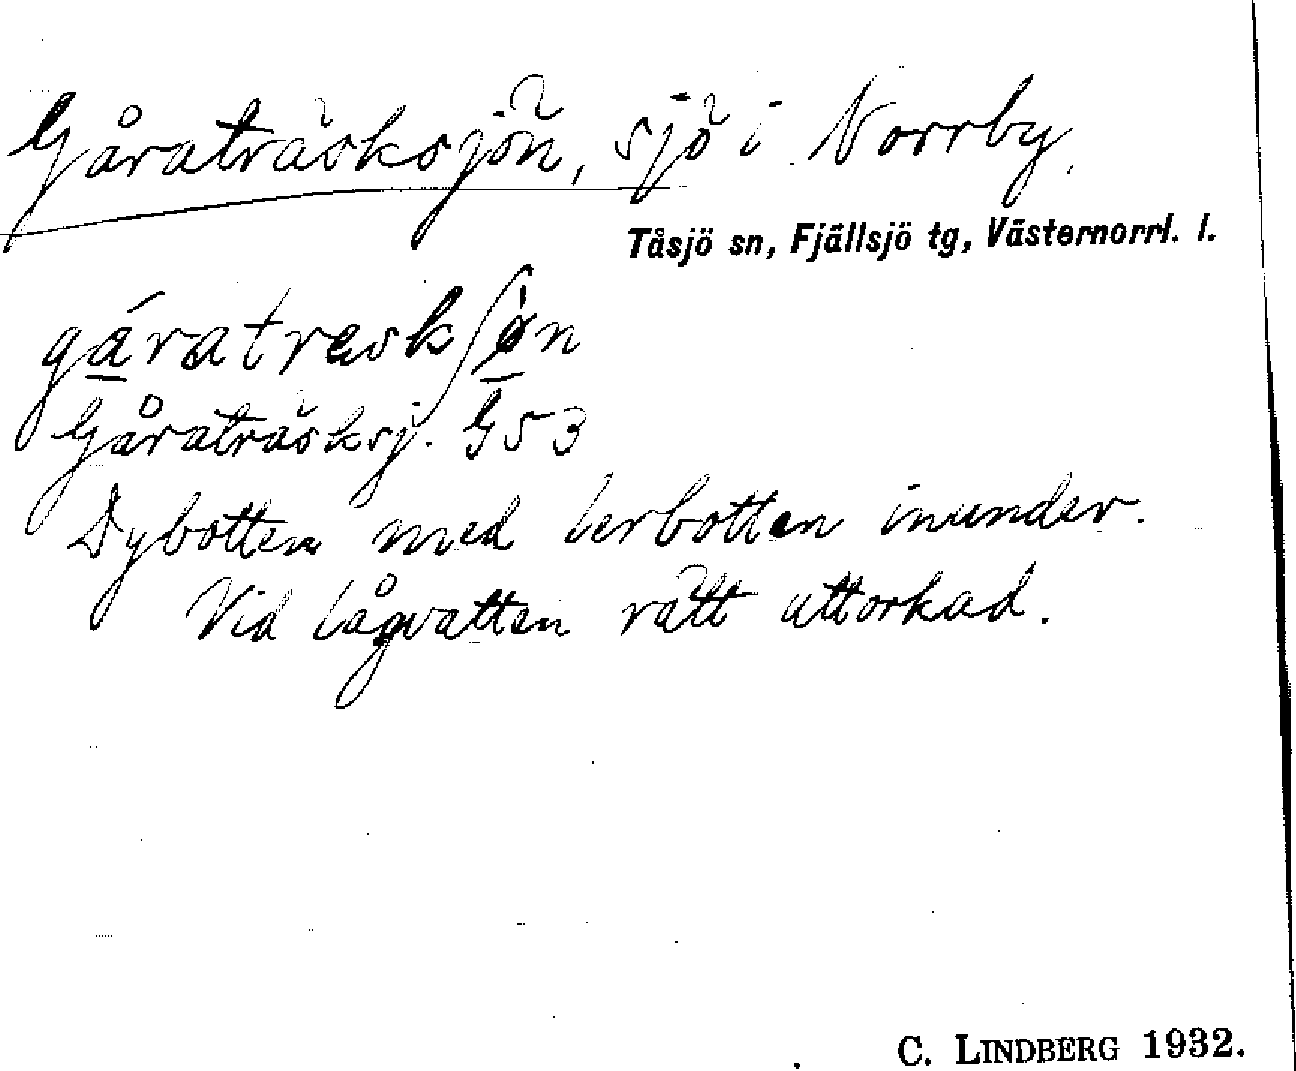 Gåraträsksjön, sjö i Norrby.
Tåsjö sn, Fjällsjö tg, Västernorrl. l.
gáratræskʃø̀n
Gåraträsksj. G53
Dybotten med lerbotten inunder.
Vid lågvatten rätt uttorkad.
C. LINDBERG 1932.